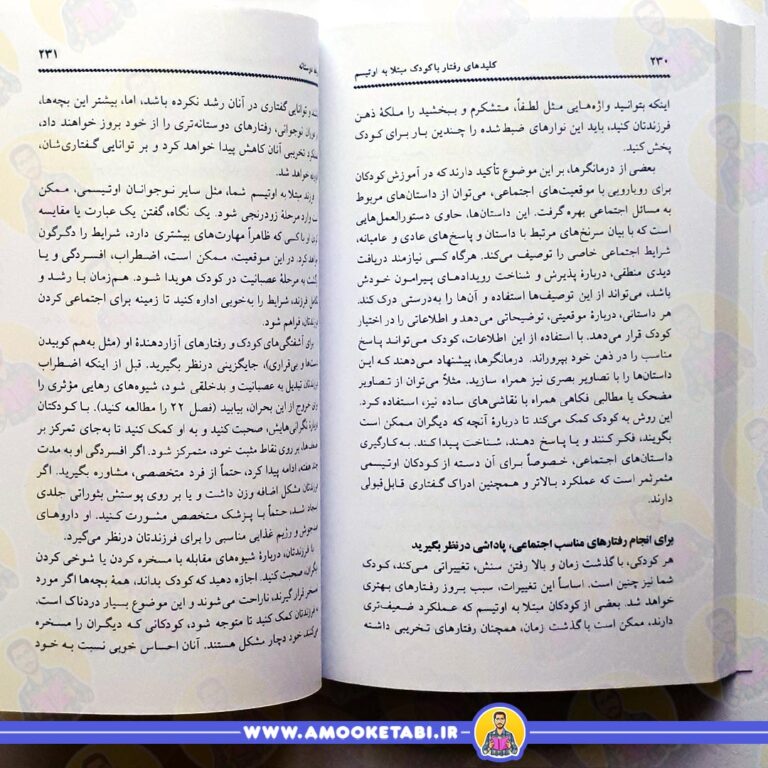 ۲۳۰
کلیدهای رفتار با کودک مبتلا به اوتیسم
اینکه بتوانید واژه‌هایی مثل لطفاً، متشکرم و ببخشید را ملکهٔ ذهن
فرزندتان کنید، باید این نوارهای ضبط‌شده را چندین بار برای کودک
پخش کنید.
بعضی از درمانگرها، بر این موضوع تأکید دارند که در آموزش کودکان
برای رویارویی با موقعیت‌های اجتماعی، می‌توان از داستان‌های مربوط
به مسائل اجتماعی بهره گرفت. این داستان‌ها، حاوی دستورالعمل‌هایی
است که با بیان سرنخ‌های مرتبط با داستان و پاسخ‌های عادی و عامیانه،
شرایط اجتماعی خاصی را توصیف می‌کند. هرگاه کسی نیازمند دریافت
دیدی منطقی، دربارهٔ پذیرش و شناخت رویدادهای پیرامون خودش
باشد، می‌تواند از این توصیف‌ها استفاده و آن‌ها را به‌درستی درک کند.
هر داستانی، دربارهٔ موقعیتی، توضیحاتی می‌دهد و اطلاعاتی را در اختیار
کودک قرار می‌دهد. با استفاده از این اطلاعات، کودک می‌تواند پاسخ
مناسب را در ذهن خود بپروراند. درمانگرها، پیشنهاد می‌دهند که این
داستان‌ها را با تصاویر بصری نیز همراه سازید. مثلاً می‌توان از تصاویر
مضحک یا مطالبی فکاهی همراه با نقاشی‌های ساده نیز، استفاده کرد.
این روش به کودک کمک می‌کند تا دربارهٔ آنچه که دیگران ممکن است
بگویند، فکر کنند و یا پاسخ دهند، شناخت پیدا کند. به کارگیری
داستان‌های اجتماعی، خصوصاً برای آن دسته از کودکان اوتیسمی
مثمرثمر است که عملکرد بالاتر و همچنین ادراک گفتاری قابل‌قبولی
دارند.
برای انجام رفتارهای مناسب اجتماعی، پاداشی درنظر بگیرید
هر کودکی، با گذشت زمان و بالا رفتن سنش، تغییراتی می‌کند، کودک
شما نیز چنین است. اساساً این تغییرات، سبب بروز رفتارهای بهتری
خواهد شد. بعضی از کودکان مبتلا به اوتیسم که عملکرد ضعیف‌تری
دارند، ممکن است با گذشت زمان، همچنان رفتارهای تخریبی داشته
۲۳۱
و توانایی گفتاری در آنان رشد نکرده باشد، اما، بیشتر این بچه‌ها،
نوجوانی، رفتارهای دوستانه‌تری را از خود بروز خواهند داد،
تخریبی آنان کاهش پیدا خواهد کرد و بر توانایی گفتاری‌شان،
خواهد شد.
مبتلا به اوتیسم شما، مثل سایر نوجوانان اوتیسمی، ممکن
وارد مرحلهٔ زودرنجی شود. یک نگاه، گفتن یک عبارت یا مقایسه
با کسی که ظاهراً مهارت‌های بیشتری دارد، شرایط را دگرگون
کرد. در این موقعیت، ممکن است، اضطراب، افسردگی و یا
به مرحلهٔ عصبانیت در کودک هویدا شود. هم‌زمان با رشد و
فرزند، شرایط را به‌خوبی اداره کنید تا زمینه برای اجتماعی کردن
فراهم شود.
برای آشفتگی‌های کودک و رفتارهای آزاردهندهٔ او (مثل به‌هم کوبیدن
و بی‌قراری)، جایگزینی درنظر بگیرید. قبل از اینکه اضطراب
تبدیل به عصبانیت و بدخلقی شود، شیوه‌های رهایی مؤثری را
خروج از این بحران، بیابید (فصل ۲۲ را مطالعه کنید). با کودکتان
نگرانی‌هایش، صحبت کنید و به او کمک کنید تا به‌جای تمرکز بر
بر روی نقاط مثبت خود، متمرکز شود. اگر افسردگی او به مدت
هفته، ادامه پیدا کرد، حتماً از فرد متخصصی، مشاوره بگیرید. اگر
مشکل اضافه وزن داشت و یا بر روی پوستش بثوراتی جلدی
شد، حتماً با پزشک متخصص مشورت کنید. او داروهای
و رژیم غذایی مناسبی را برای فرزندتان درنظر می‌گیرد.
با فرزندتان، دربارهٔ شیوه‌های مقابله با مسخره کردن یا شوخی کردن
صحبت کنید. اجازه دهید که کودک بداند، همهٔ بچه‌ها اگر مورد
قرار گیرند، ناراحت می‌شوند و این موضوع بسیار دردناک است.
فرزندتان کمک کنید تا متوجه شود، کودکانی که دیگران را مسخره
خود دچار مشکل هستند. آنان احساس خوبی نسبت به خود
WWW.AMOOKETABI.IR